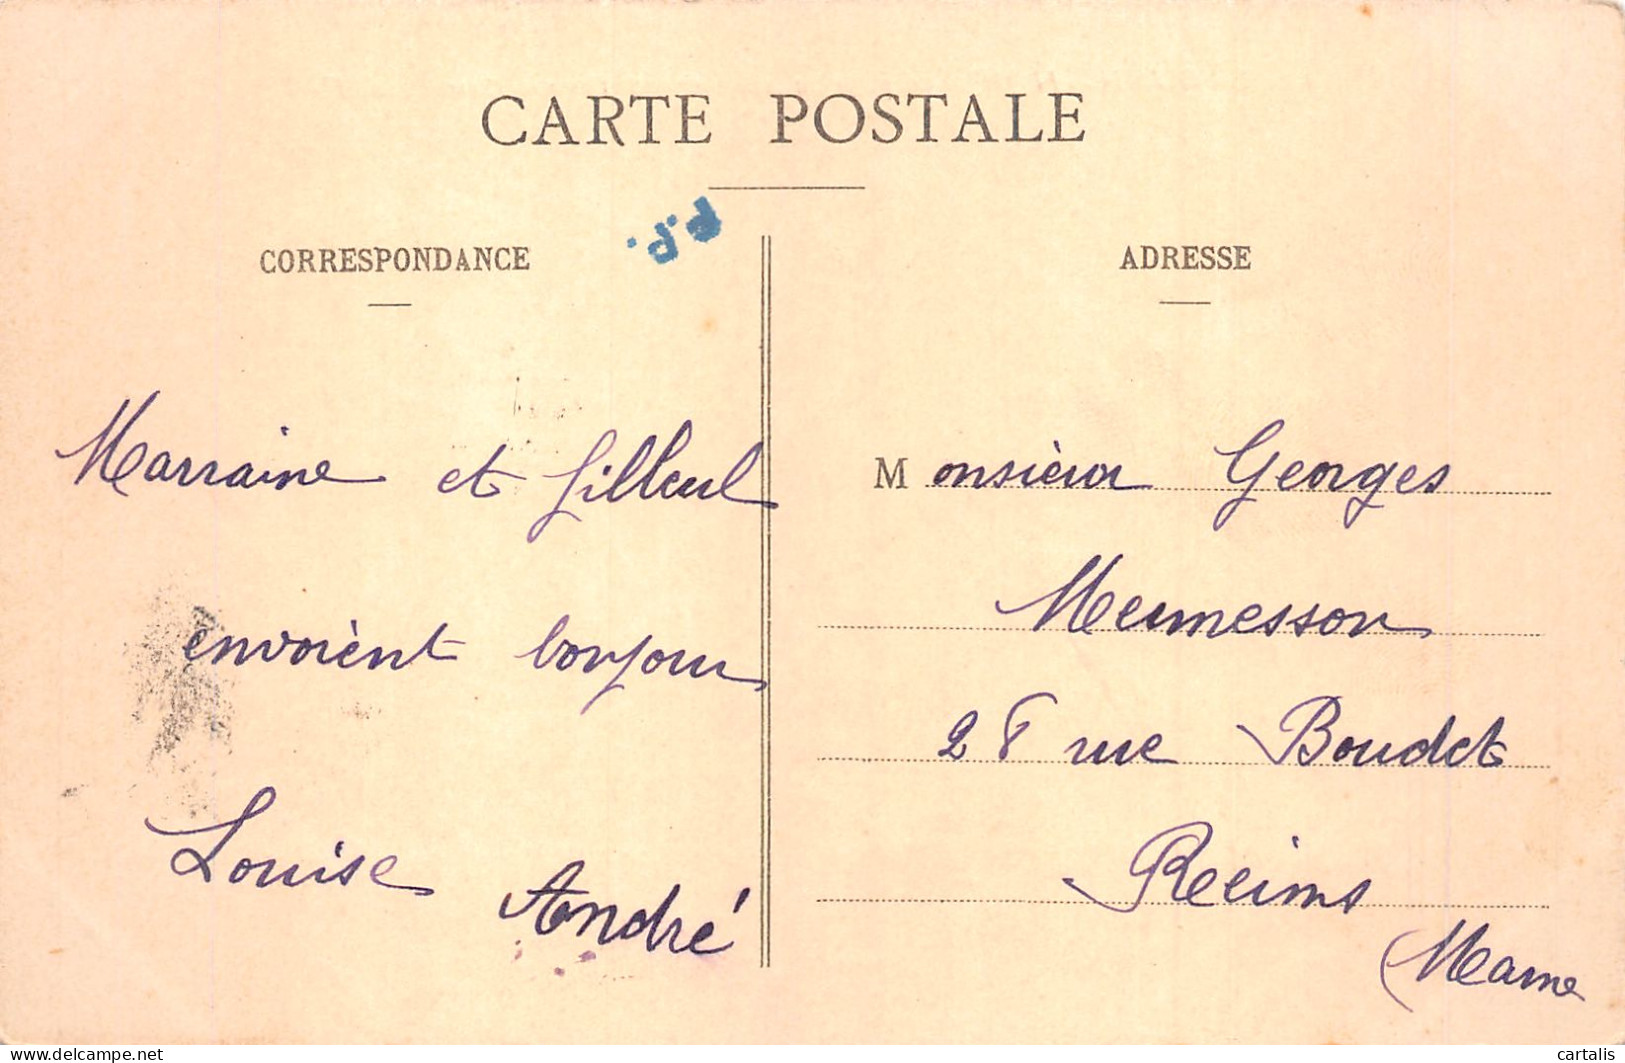 CARTE POSTALE
P.P.
CORRESPONDANCE
Marraine et filleul
envoient bonjour
Louise
André
ADRESSE
Monsieur Georges
Meunesson
28 rue Boudet
Reims
(Marne
delcampe.net
cartalis